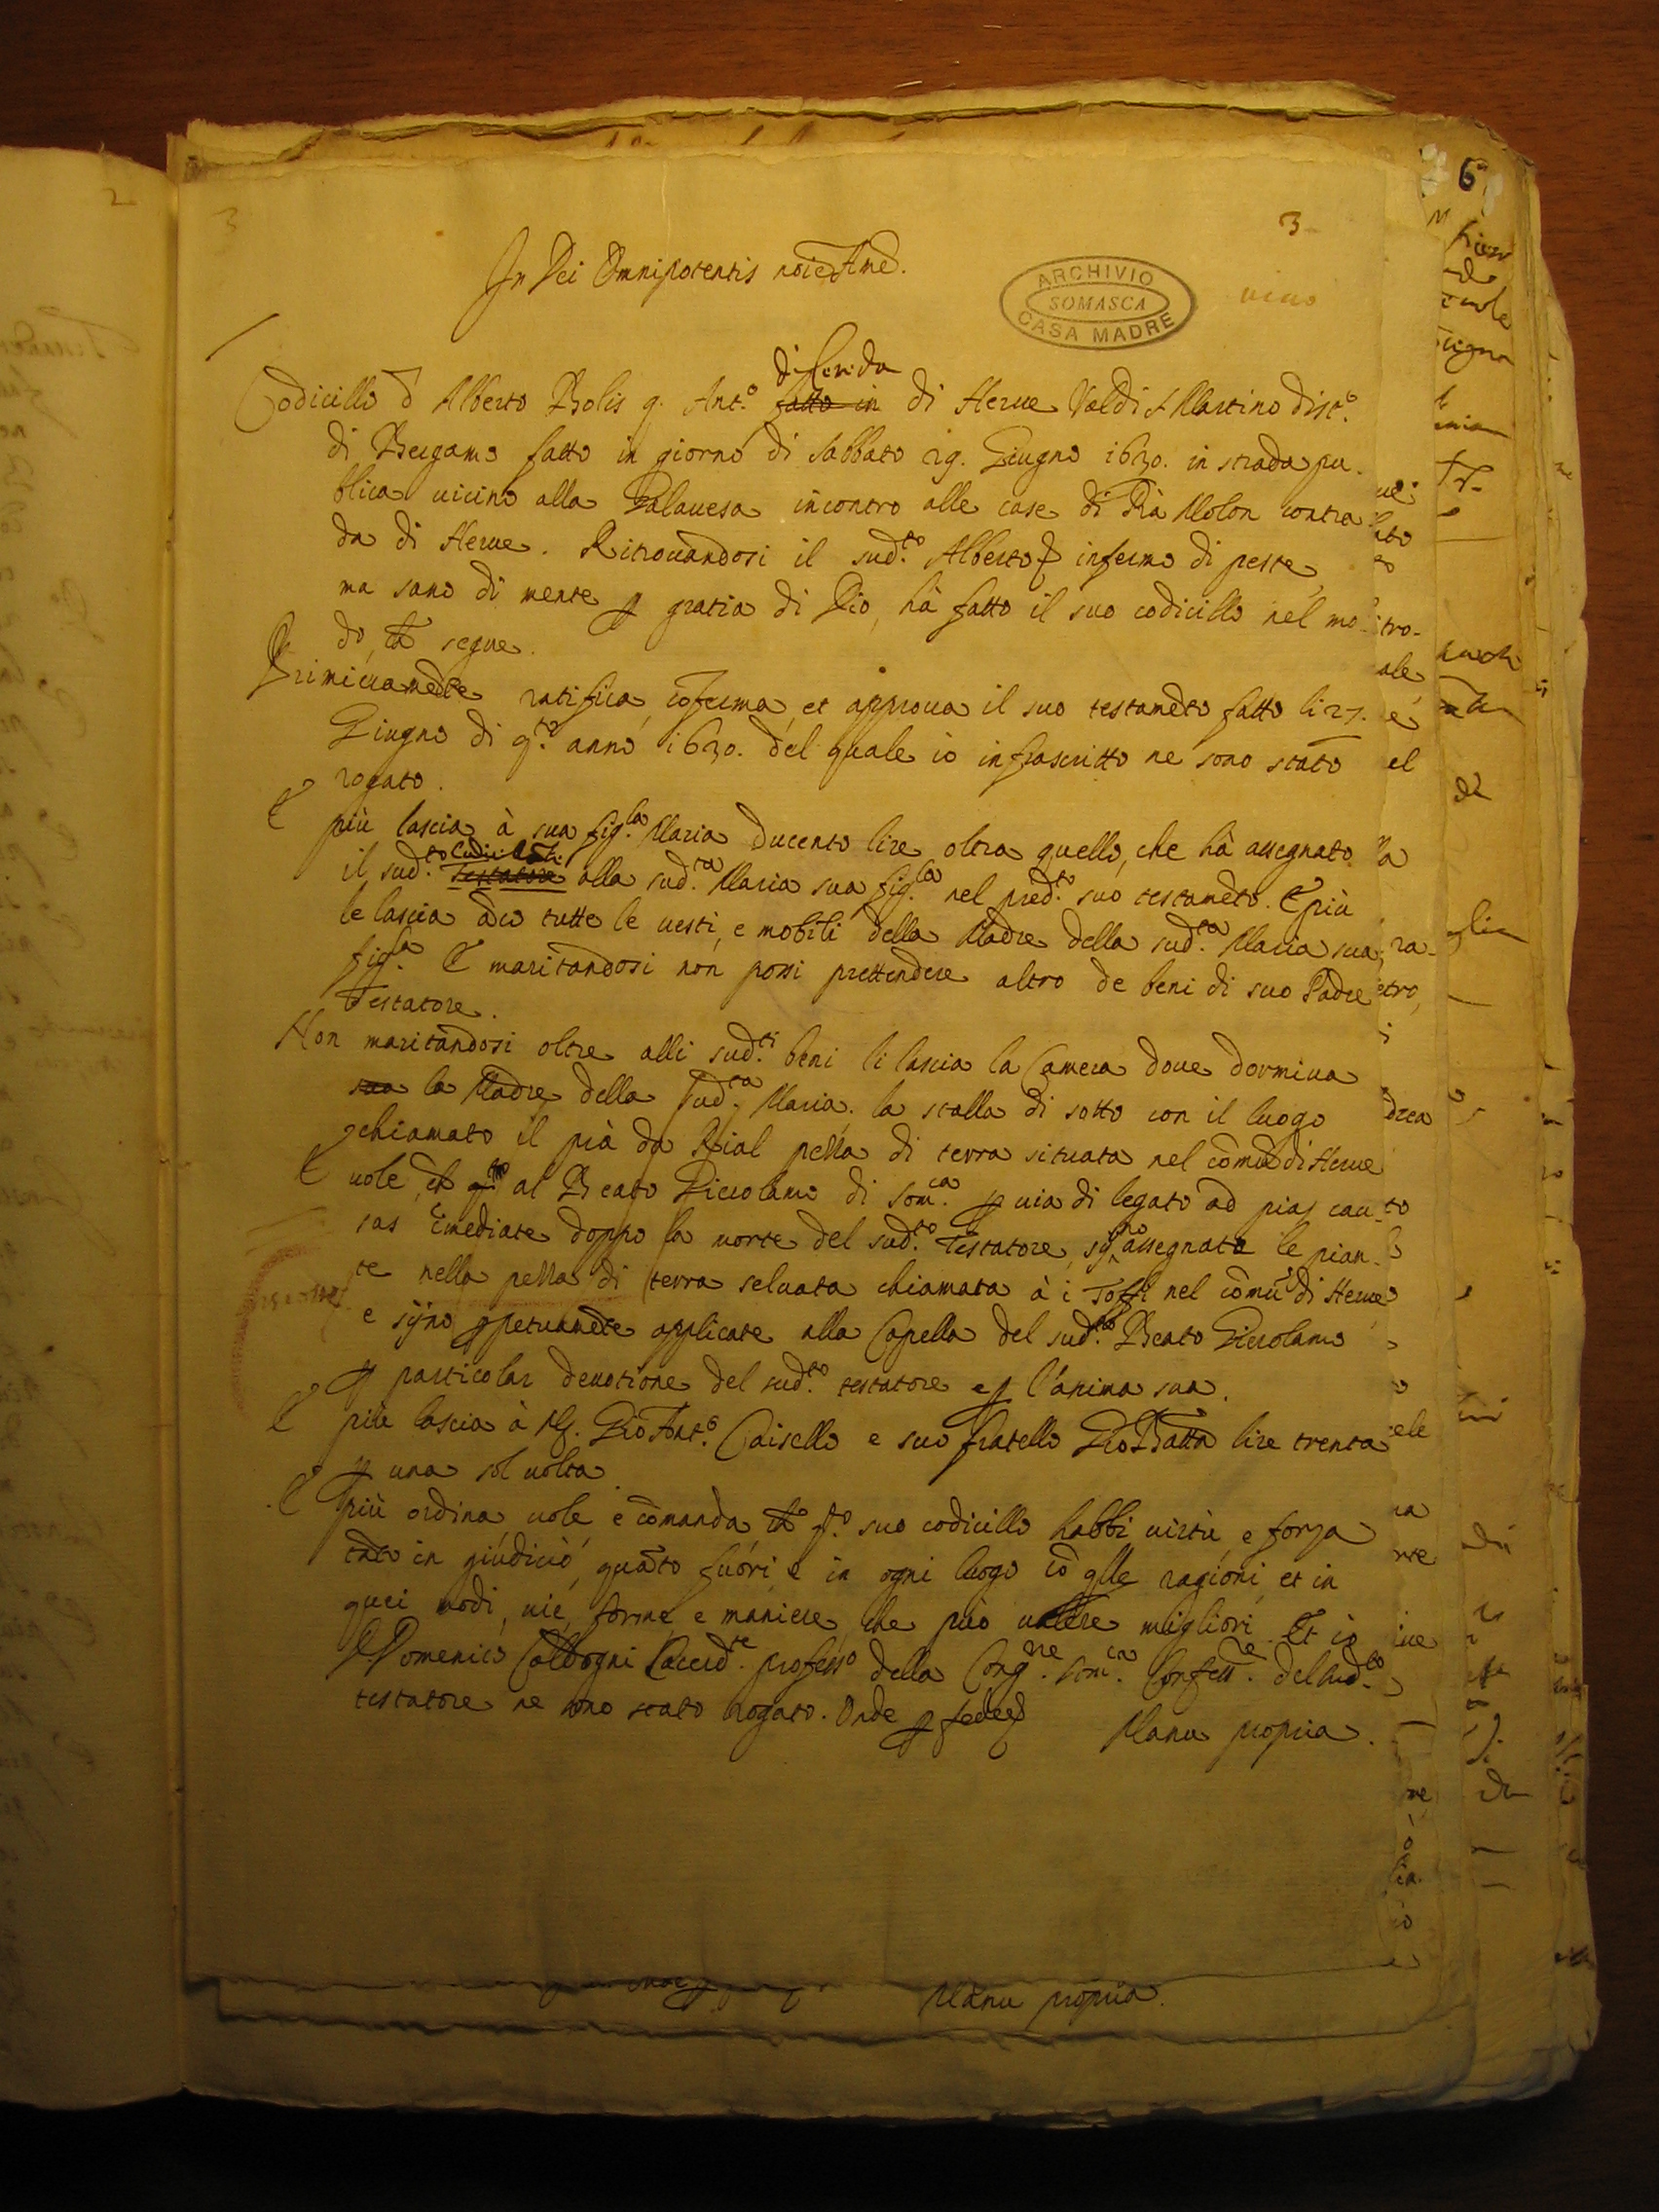 2
3
3
In Dei Omnipotentis noīe Amē.
ARCHIVIO
SOMASCA
CASA MADRE
Codicillo d Alberto Bolis q. Ant.o fatto in di Herue Val di S Martino dist.o
di Bergamo fatto in giorno di Sabbato 29. Giugno 1630. in strada pu-
blica uicino alla Galauesa incontro alle case di Prà Molon contra
da di Herue. Ritrouandosi il sud.to Alberto infermo di peste,
ma sano di mente p gratia di Dio, hà fatto il suo codicillo nel mo-
do, segue.
Primieramēte ratifica, cōferma, et approua il suo testamēto fatto li 27.
Giugno di q.to anno 1630. del quale io infrascritto ne sono stato
rogato.
E più lascia à sua fig.la Maria ducento lire oltra quello, che hà assegnato
il sud.to Testatore alla sud.ta Maria sua fig.la nel pred.to suo testamēto. E più
le lascia āco tutte le uesti, e mobili della Madre della sud.ta Maria sua
fig.la E maritandosi non possi prettendere altro de beni di suo Padre
Testatore.
Non maritandosi oltre alli sud.ti beni li lascia la Camera doue dormiua
sua la Madre della sud.ta Maria. la stalla di sotto con il luogo
chiamato il prà da Rial pezza di terra situata nel comū di Herue
E uole, al Beato Gierolamo di Som.ca p uia di legato ad pias cau-
sas īmediate doppo la morte del sud.to Testatore, sijno assegnate le pian-
te nella pezza di terra seluata chiamata à i Toffi nel comū di Herue
e sijno ppetuamēte applicate alla Capella del sud.to Beato Gierolamo
p particolar deuotione del sud.to testatore e p l'anima sua.
E più lascia à M. Gio Ant.o Caisello e suo fratello Gio Batta lire trenta
p una sol uolta.
E più ordina uole e comanda q.to suo codicillo habbi uirtù, e forza
tāto in giudicio, quāto fuori e in ogni luogo cō qlle ragioni, et in
quei modi, uie, forme, e maniere, che può ualere migliori. Et io
Domenico Caldogni Sacerd.te professo della Cong.ne Som.ca Confess.re del sud.to
testatore ne sono stato rogato. Onde p fede
Manu propria.
Manu propria.